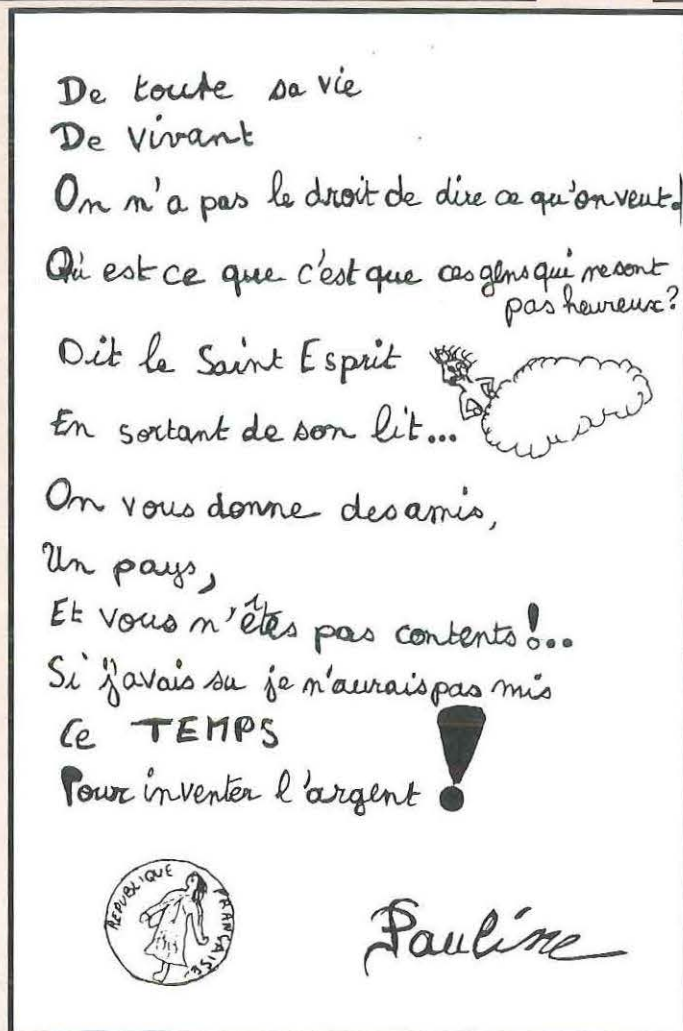 De toute sa vie
De vivant
On n'a pas le droit de dire ce qu'on veut.
Qu'est ce que c'est que ces gens qui ne sont
pas heureux?
Dit le Saint Esprit
En sortant de son lit...
On vous donne des amis,
Un pays,
Et vous n'êtes pas contents!...
Si j'avais su je n'aurais pas mis
Ce TEMPS
Pour inventer l'argent!
REPUBLIQUE FRANÇAISE
Pauline